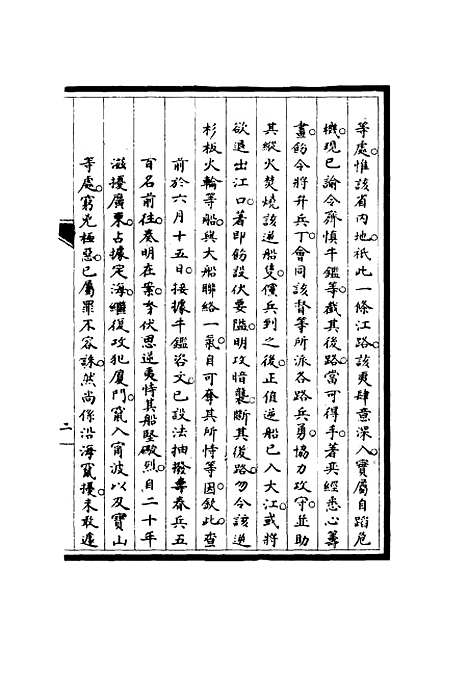 等處。惟該省內地。祇此一條江路。該夷肆意深入。實屬自蹈危
機。現已諭令齊慎牛鑑等。截其後路。當可得手。著奕經悉心籌
畫。飭令將弁兵丁。會同該督等所派各路兵勇。協力攻守。並助
其縱火焚燒該逆船隻。儻兵到之後。正值逆船已入大江。或將
欲退出江口。著即飭設伏要隘。明攻暗襲。斷其後路。勿令該逆
杉板火輪等船。與大船聯絡一氣。自可奪其所恃等因。欽此。查
前於六月十五日。接據牛鑑咨文。已設法抽撥壽春兵五
百名前往。奏明在案。奎伏思逆夷恃其船堅礮烈。自二十年
滋擾廣東。占據定海。繼復攻犯廈門。竄入甯波以及寶山
等處。窮兇極惡。已屬罪不容誅。然尚係沿海竄擾。未敢遽
二